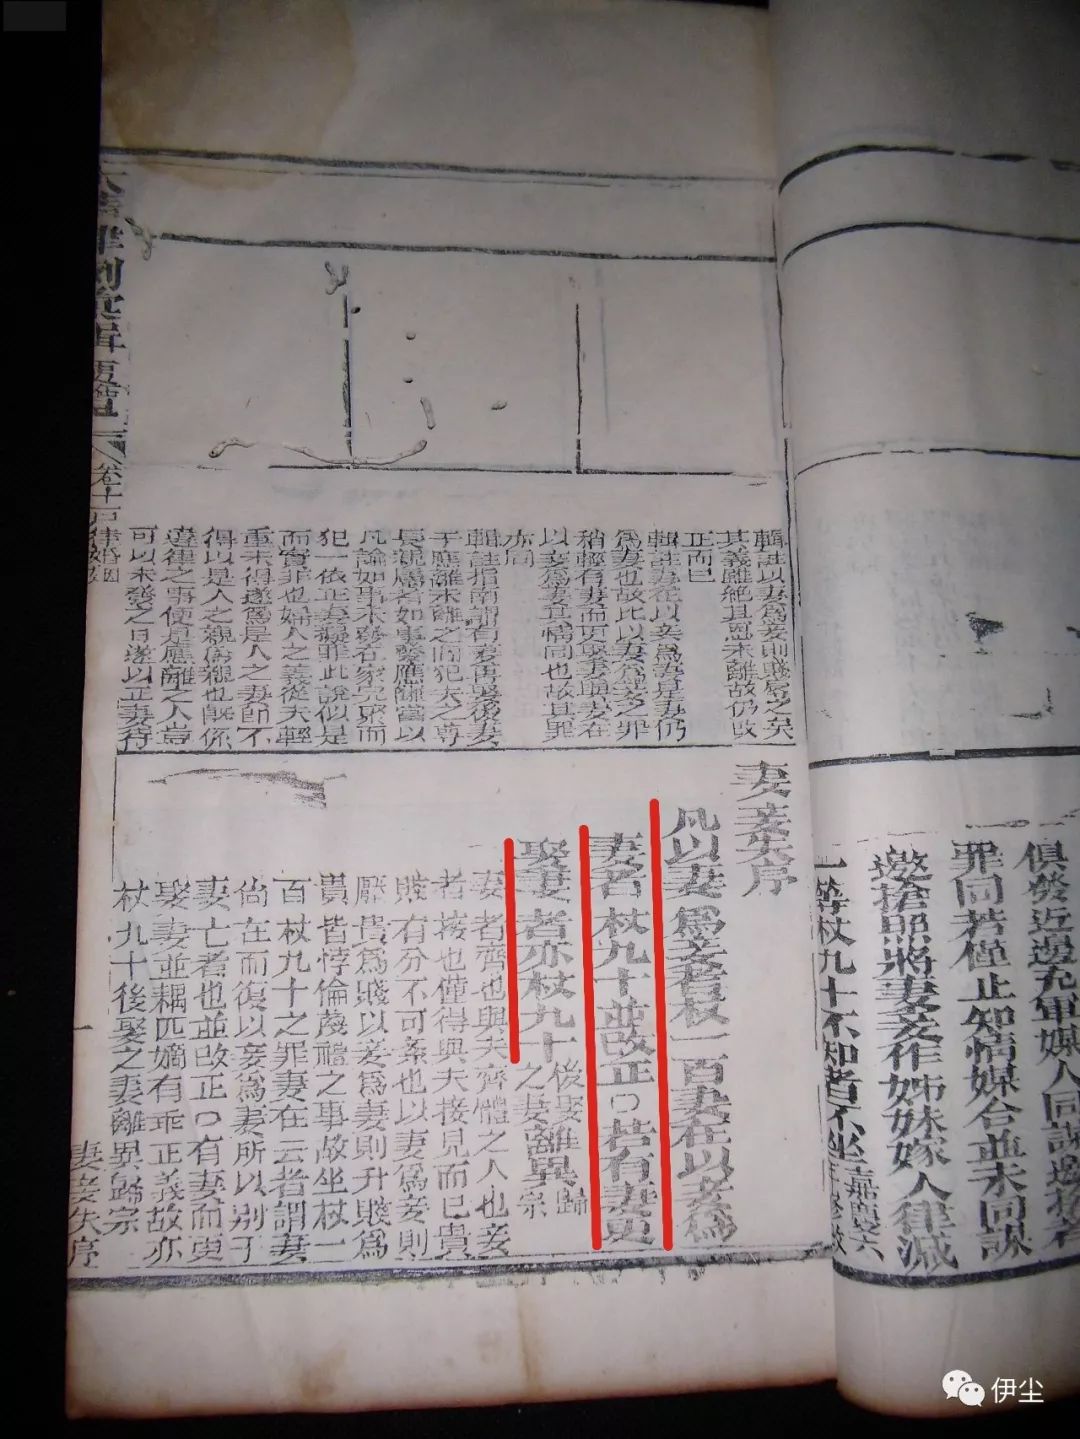 俱發近邊充軍媒人同謀邀搶者
罪同若僅止知情媒合並未同謀
邀搶照將妻妾作姊妹嫁人律減
一等杖九十不知者不坐嘉慶六
輯註以妻爲妾則賤辱之矣
其義雖絕其恩未離故仍改
正而已
輯註妻在以妾爲妻是妻仍
爲妻也故比以妻爲妾之罪
稍輕有妻而更娶妻與妻在
以妾爲妻其情同也故其罪
亦同
輯註指南謂有妻再娶後妻
于應離未離之間犯夫之尊
長親屬者如事發應離當以
凡論如事未發在家完聚而
犯一依正妻擬罪此說似是
而實非也婦人之義從夫輕
重未得遂爲是人之妻卽不
得以是人之親爲親也旣係
違律之事便是應離之人豈
可以未發之日遂以正妻待
妻妾失序
凡以妻爲妾者杖一百妻在以妾爲
妻者杖九十並改正○若有妻更
娶妻者亦杖九十後娶之妻離異歸宗
妻者齊也與夫齊體之人也妾
者接也僅得與夫接見而已貴
賤有分不可紊也以妻爲妾則
壓貴爲賤以妾爲妻則升賤爲
貴皆悖倫蔑禮之事故坐杖一
百杖九十之罪妻在云者謂妻
尚在而復以妾爲妻所以別于
妻亡者也並改正○有妻而更
娶妻並耦匹嫡有乖正義故亦
杖九十後娶之妻離異歸宗
大清律例彙輯便覽
卷十
戶律婚姻
一
妻妾失序
伊尘